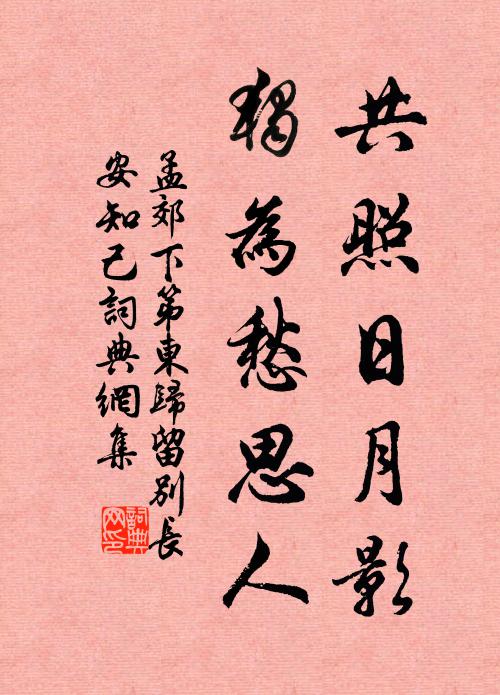 共照日月影
獨為愁思人
孟郊下第東歸留別長
安知己詞典網集
詞典
網印